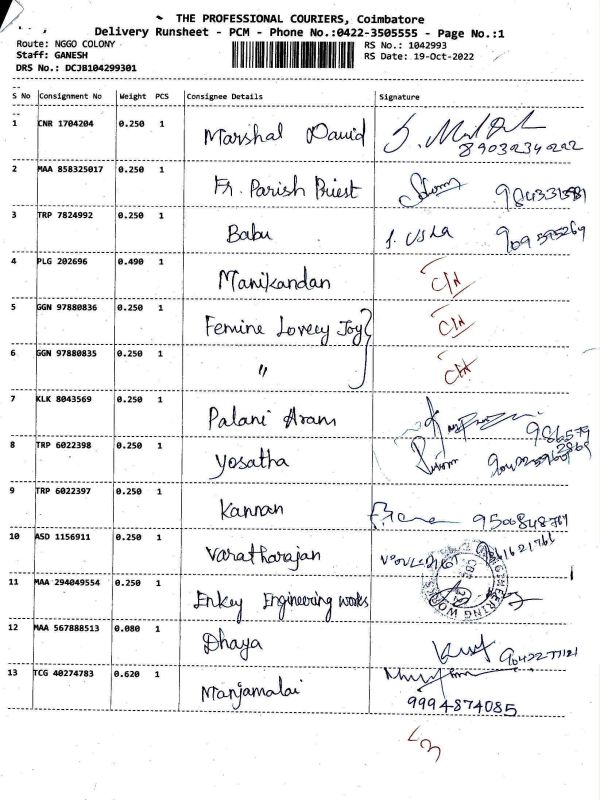 THE PROFESSIONAL COURIERS, Coimbatore
Delivery Runsheet - PCM - Phone No.:0422-3505555 - Page No.:1
Route: NGGO COLONY RS No.: 1042993
Staff: GANESH RS Date: 19-Oct-2022
DRS No.: DCJB104299301
S No Consignment No Weight PCS Consignee Details Signature
1 CNR 1704204 0.250 1 Marshal David
8903234022
2 MAA 858325017 0.250 1 Fr. Parish Priest
3 TRP 7824992 0.250 1 Babu
4 PLG 202696 0.490 1 Manikandan C/N
5 GGN 97880836 0.250 1 Femine Lovely Joy C/N
6 GGN 97880835 0.250 1 " C/N
7 KLK 8043569 0.250 1 Palani Aram
8 TRP 6022398 0.250 1 Yosatha
9 TRP 6022397 0.250 1 Kannan 9500848767
10 ASD 1156911 0.250 1 Varatharajan
11 MAA 294049554 0.250 1 Enkey Engineering works
12 MAA 567888513 0.080 1 Dhaya
13 TCG 40274783 0.620 1 Manjamalai
9994874085